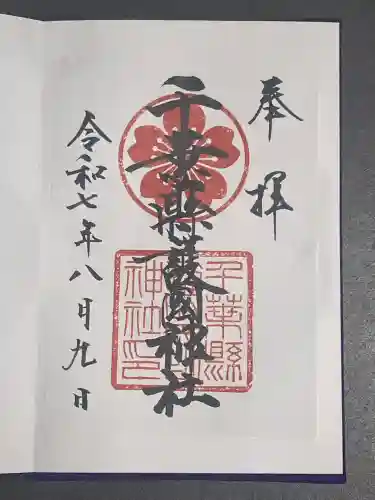 奉拝
千葉県護国神社
千葉縣護國神社印
令和七年八月九日